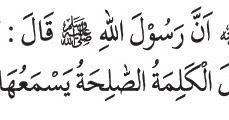 اَنَّ رَسُوْلَ اللهِ ﷺ قَالَ :
الْكَلِمَةُ الصّٰلِحَةُ يَسْمَعُهَا